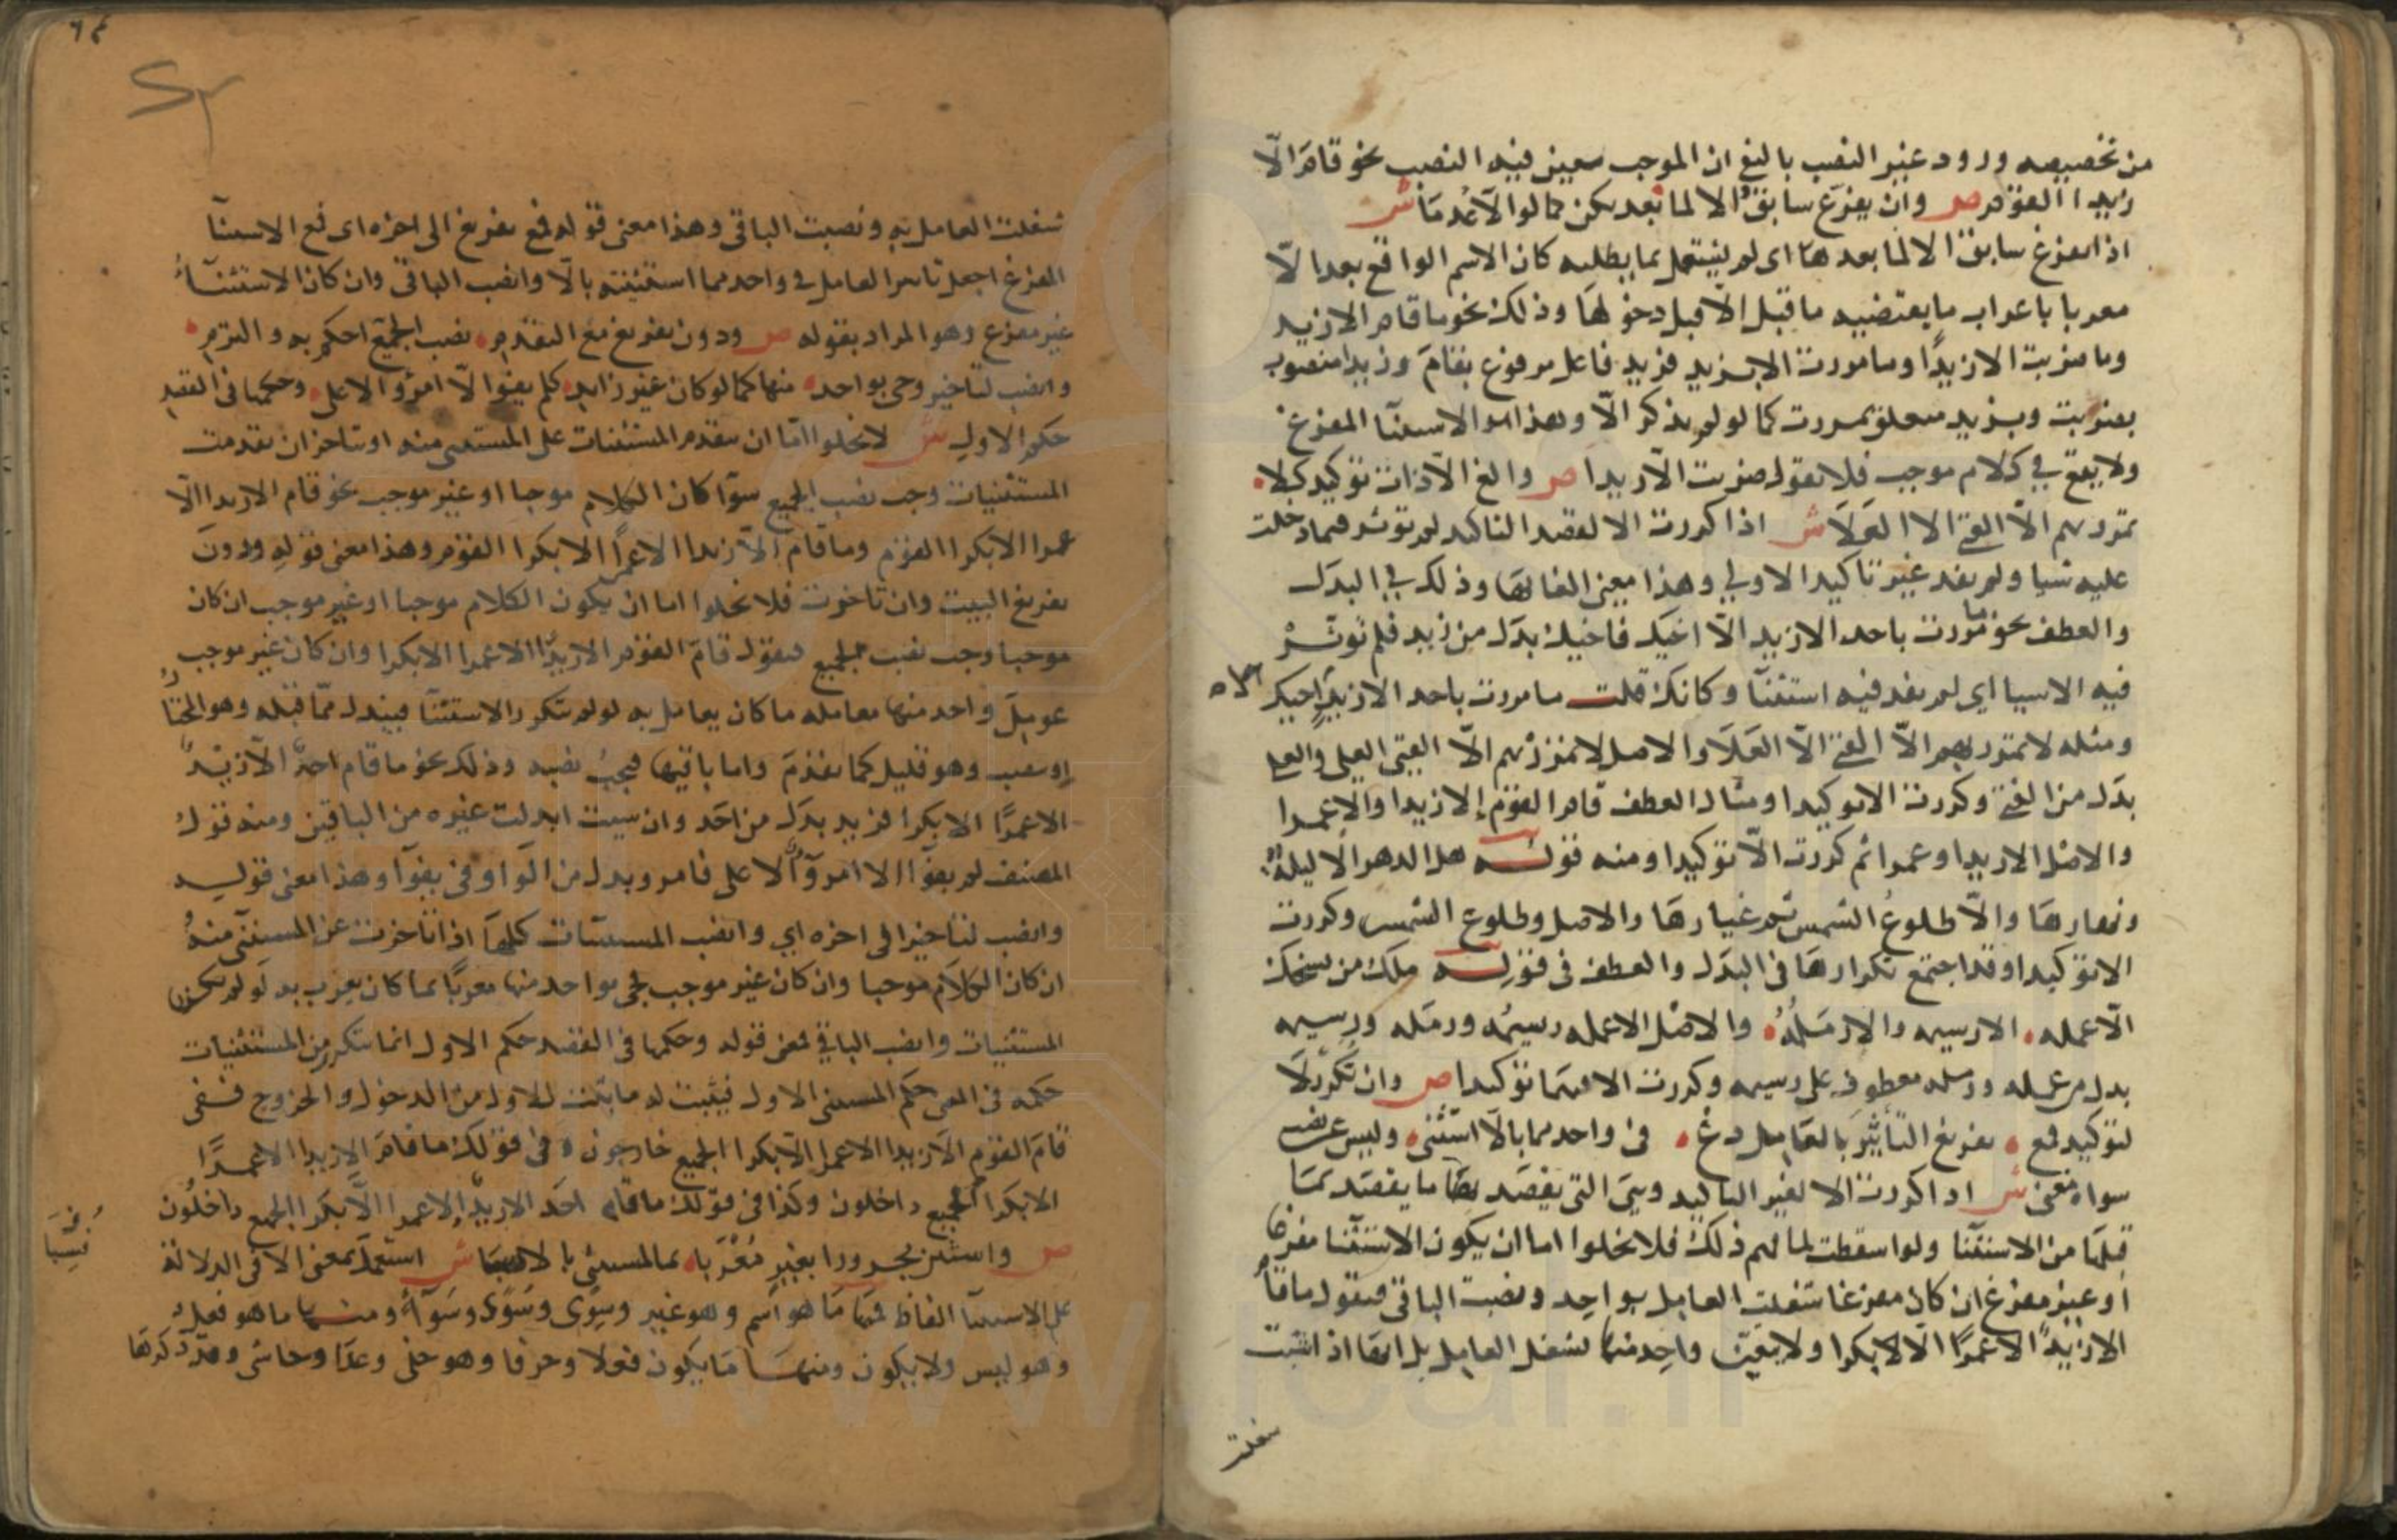 من تخصيصه ورود غير النصب بالنفي ان الموجب سعين فيه النصب نحو قام الّا
زيدا القوم ص وان يفرّغ سابقٌ الا لما بعد يكن كما لوا لّا عُدِمَا ش
اذا تفرغ سابق الا لما بعدها اى لم يشتغل بما يطلبه كان الاسم الواقع بعد الّا
معربا باعراب ما يقتضيه ما قبل الّا قبل دخولها وذلك نحو ما قام الا زيد
وما ضربت الا زيدًا وما مررت الا بزيد فزيد فاعل مرفوع بقامَ وزيدا منصوب
بضربت وبزيد متعلق بمررت كما لو لم يذكر الّا وهذا هو الاستثنآ المفرغ
ولا يقع في كلام موجب فلا تقول ضربت الّا زيدا ص والغ الّا ذات توكيد كلا
تمرر بهم الّا الفتى الا العَلَا ش اذا كررت الا لقصد التاكيد لم توثر فيما دخلت
عليه شيا ولم تفد غير تاكيد الاولي وهذا معنى الغايها وذلك في البدَل
والعطف نحو ما مررت باحد الا زيد الّا اخيك فاخيك بدَل من زيد فلم توثّرْ
فيه الا شيا اي لم تفد فيه استثنآ وكانك قلت ما مررت باحد الا زيدٍ اخيك
ومثله لا تمرر بهم الّا الفتى الّا العَلَا والاصل لا تمرر بهم الّا الفتى العلى والعلى
بدَل من الفتى وكررت الا توكيدا ومثال العطف قام القوم إلا زيدا والا عمرا
والاصْل الا زيدا وعمرا ثم كررت الّا توكيدا ومنه قولــه هل الدهر الا ليلةٌ
ونهارهَا والّا طلوعُ الشمس ثم غيارهَا والاصل وطلوع الشمس وكررت
الا توكيدا وقد اجتمع تكرارهَا فى البدَل والعطف فى قولِــه مالك من شيخك
الّا عمله الا رسيمه والا رمَلُهُ والاصْل الا عمله رسيمُه ورمَله ورسيمه
بدل من عمله ورمله معطوف على رسيمه وكررت الا فيهمَا توكيدا ص وان تُكَرَّر لَا
لتوكيد فمع تفريغ التأثيرَ بالعَامِل دعْ فى واحد مما بالّا استُثنى وليس عن نصب
سواه مغنى ش اذا كررت الا لغير التاكيد وهيَ التى يقصَد بهَا ما يقصَد بمَا
قبلهَا من الاستثنَا ولو اسقطت لما فهم ذلك فلا يخلوا اما ان يكون الاستثنا مفرغا
او غير مفرغ ان كان مفرغا شغلت العامِل بواحِد ونصبت الباقى فتقول ما قام
الا زيدٌ الا عمرًا الّا لا بكرا ولا يتعيّن واحِد منها لشغل العامِل بل ايهَا اذ اشئت
شغلت
شغلت العامل به ونصبت الباقى وهذا معنى قوله فمع تفريغ الى اخره اى مع الاستثنآ
المفرغ اجعل تاثير العامل فى واحد مما استثنيته بالّا وانصب الباقى وان كان الاستثنآءُ
غير مفرع وهو المراد بقوله ص ودون تفريغ مع التقدم نصب الجميع احكم به والتزم
وانصب لتاخير وجى بواحد منها كما لو كان غير زايد كلم يفوا الّا امرُؤ الا على وحكمها فى القصد
حكم الاولِ ش لا يخلوا امّا ان تتقدم المستثنات على المستثنى منه او تتاخر ان تقدمت
المستثنيات وجب نصب الجميع سوآ كان الكلام موجبا او غير موجب نحو قام الا زيدا الّا
عمرا الا بكرا القوم وما قام الّا زيدا الا عمرًا الا بكرا القوم وهذا معنى قولِه ودونَ
تفريغ البيت وان تاخرت فلا يخلوا اما ان يكون الكلام موجبا او غير موجب ان كان
موجبا وجب نصب الجميع فتقول قامَ القوم الا زيدًا الا عمرا الا بكرا وان كان غير موجب
عومِلَ واحد منها معامله ما كان يعامل به لو لم تتكرر الاستثنآ فيبدل ممّا قبله وهو المختارُ
او ينصب وهو قليل كما تقدمَ واما باقيها فيجبُ نصبه وذلك نحو ما قام احدٌ الّا زيْدٌ
الا عمرًا الا بكرا فزيد بدَل من احَد وان شيت ابدلت غيره من الباقين ومنه قول
المصنف لم يفوا الا امروٌ الا على فامرو بدل من الواو فى يفوآ وهذا معنى قولِــه
وانصب لتاخير الى اخره اي وانصب المستثنات كلهَا اذا تاخرت عن المستثنى منهُ
ان كان الكلام موجبا وان كان غير موجب فجى بواحد منها معربًا بما كان يعرَب به لو لم تتكرر
المستثنيات وانصب الباقي فمعنى قوله وحكمها فى القصد حكم الاول انما تكرر من المستثنيات
حكمه فى المعنى حكم المستثنى الاول فيثبت له ما يثبت للاول من الدخول والخروج فـفى
قامَ القوم الّا زيدا الا عمرا الّا بكرا الجميع خارجون وفى قولك ما قامَ الا زيدا الا عمــرًا
الا بكرا الجميع داخلون وكذا فى قولك ما قام احَد الا زيدٌ إلا عمرا الّا بكرا الجميع داخلُون
ص واستثن مجــرورا بغيرٍ مُعْرَبا بما لمستثنى بالا نُسِبَا ش استُعملَ بمعنى الا فى الدلالة
على الاستثنآ الفاظ فمنهَا مَا هو اسم وهو غير وسِوَى وسُوًى وسَوَآءٌ ومنــها ما هو فعل
وهو ليس ولا يكون ومنهــا مَا يكون فعلا وحرفا وهو خلى وعدَا وحاشى وقد ذكرهَا
نُسِبَا